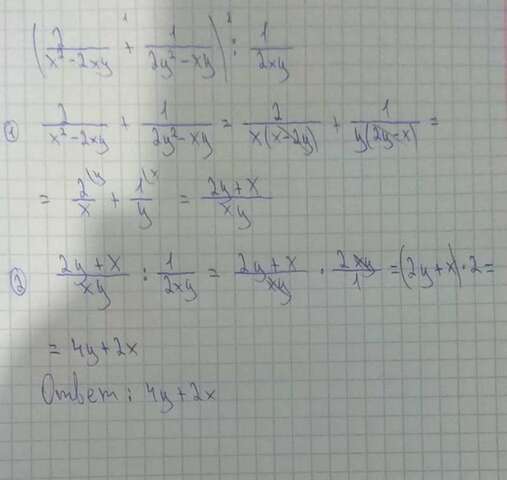 (2/(x²-2xy) +¹ 1/(2y²-xy)) :² 1/(2xy)
① 2/(x²-2xy) + 1/(2y²-xy) = 2/(x(x-2y)) + 1/(y(2y-x)) =
= 2^(y/x + 1^(x/y = (2y+x)/(xy)
② (2y+x)/(xy) : 1/(2xy) = (2y+x)/(xy) · (2xy)/1 = (2y+x)·2 =
= 4y+2x
Ответ: 4y+2x